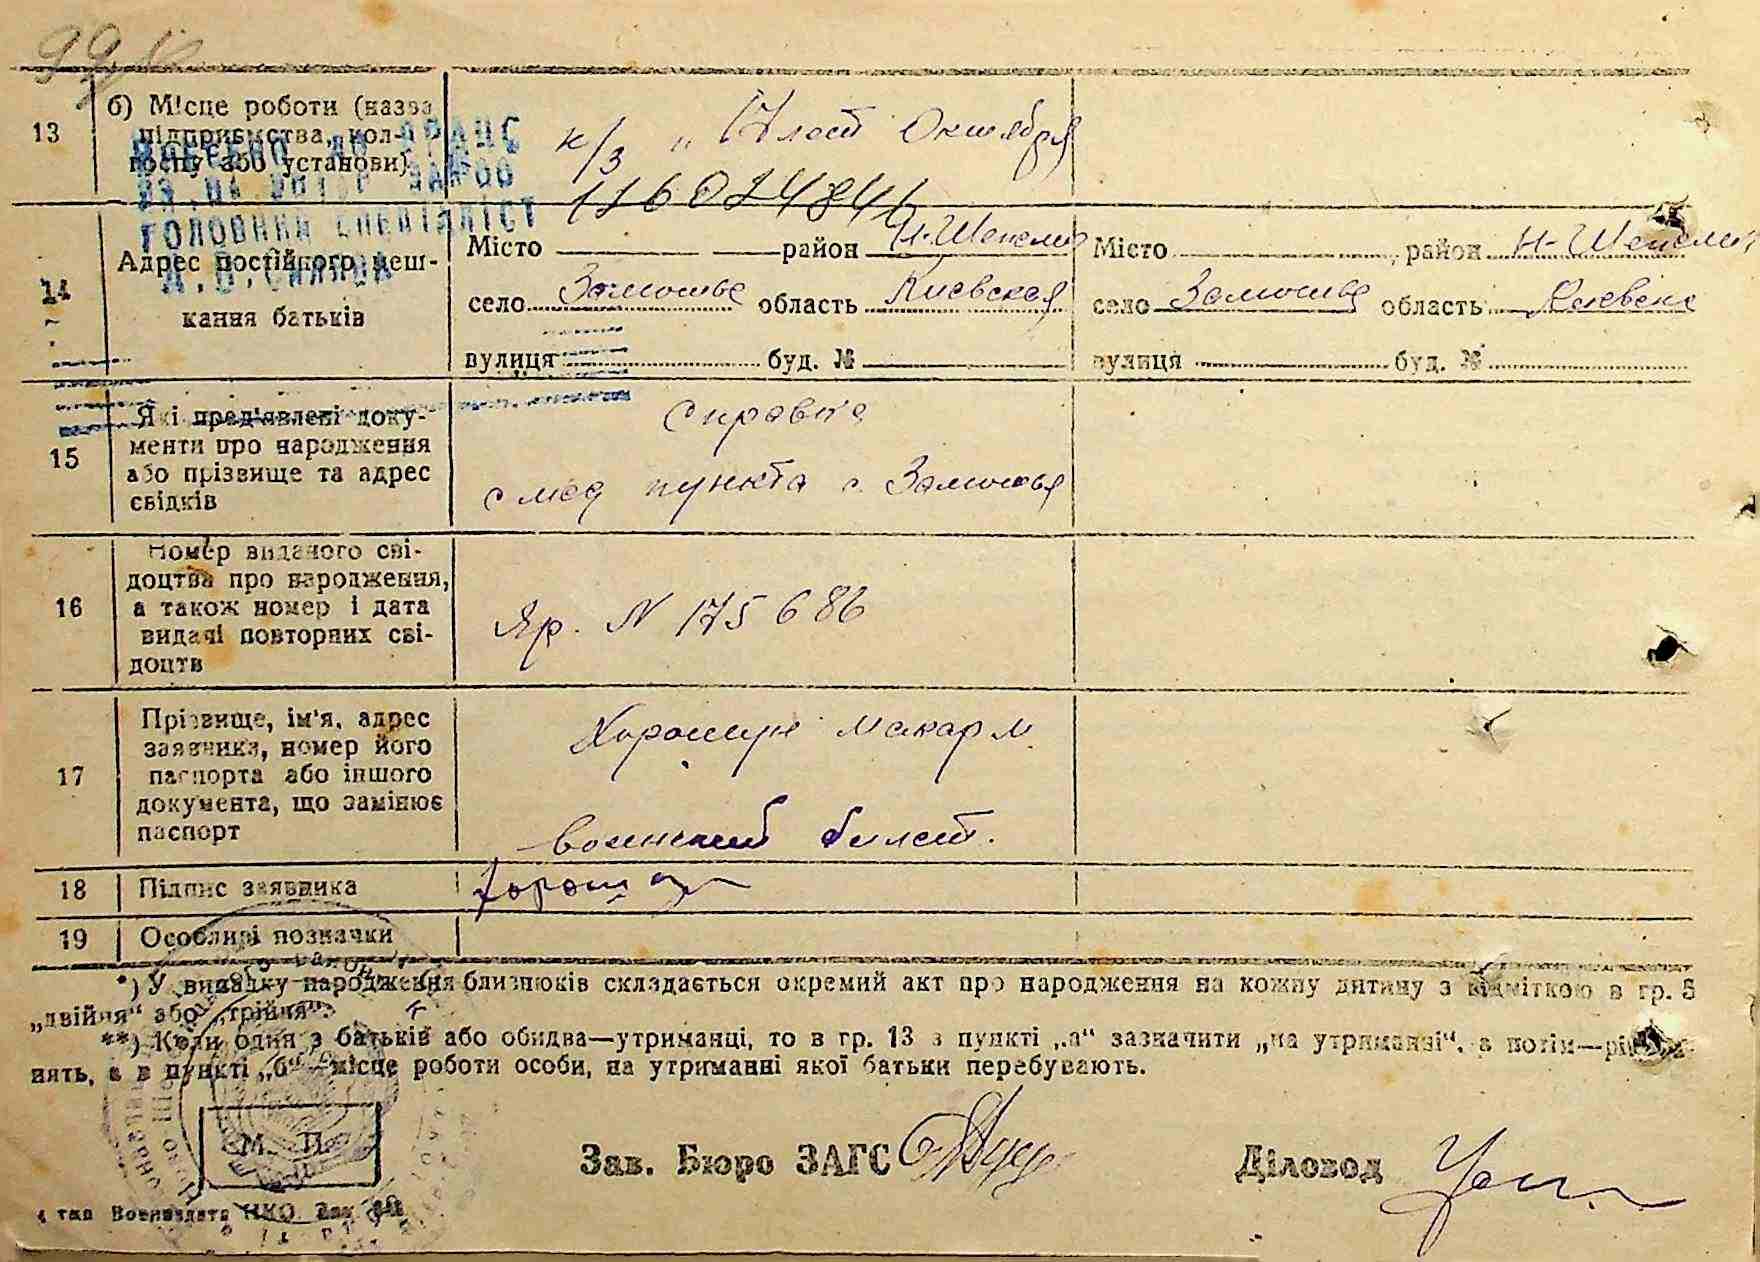 13
б) Місце роботи (назва
підприємства, кол-
госпу або установи)
к/з „ 17 лет Октября
ГОЛОВНИЙ СПЕЦІАЛІСТ
14
Адрес постійного меш-
кання батьків
Місто район Н-Шепели
село Замошье область Киевская
вулиця буд. №
Місто район Н-Шепели
село Замошье область Киевск
вулиця буд. №
15
Які пред'явлені доку-
менти про народження
або прізвище та адрес
свідків
Справка
с мед пункта с. Замошья
16
Номер виданого сві-
доцтва про народження,
а також номер і дата
видачі повторних сві-
доцтв
Яр. N 175686
17
Прізвище, ім'я, адрес
заявника, номер його
паспорта або іншого
документа, що замінює
паспорт
Хорошун Макар М.
воинский билет.
18
Підпис заявника
19
Особливі позначки
*) У випадку народження близнюків складається окремий акт про народження на кожну дитину з відміткою в гр. 5
„двійня“ або „трійня“.
**) Коли один з батьків або обидва—утриманці, то в гр. 13 в пункті „а“ зазначити „на утриманні“, а потім—
нять, а в пункті „б“—місце роботи особи, на утриманні якої батьки перебувають.
М. П.
Зав. Бюро ЗАГС
Діловод